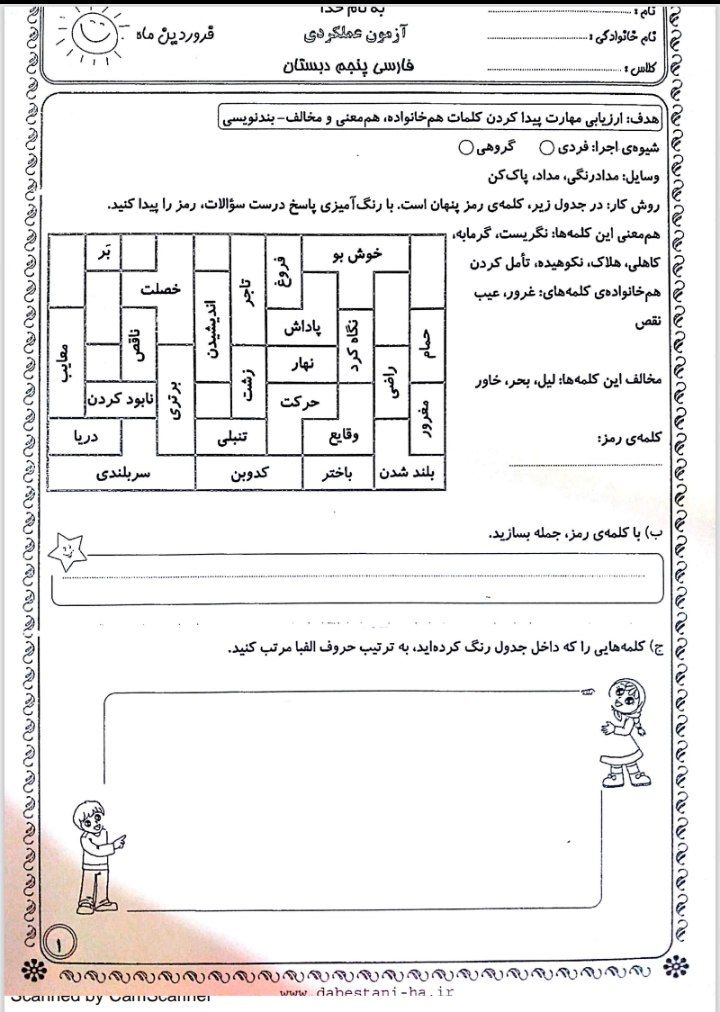 به نام خدا
نام:
آزمون عملکردی
فروردین ماه
نام خانوادگی:
فارسی پنجم دبستان
کلاس:
هدف: ارزیابی مهارت پیدا کردن کلمات هم‌خانواده، هم‌معنی و مخالف- بندنویسی
شیوه‌ی اجرا: فردی گروهی
وسایل: مدادرنگی، مداد، پاک‌کن
روش کار: در جدول زیر، کلمه‌ی رمز پنهان است. با رنگ‌آمیزی پاسخ درست سؤالات، رمز را پیدا کنید.
هم‌معنی این کلمه‌ها: نگریست، گرمابه،
کاهلی، هلاک، نکوهیده، تأمل کردن
هم‌خانواده‌ی کلمه‌های: غرور، عیب
نقص
مخالف این کلمه‌ها: لیل، بحر، خاور
کلمه‌ی رمز:
خوش بو
فروغ
تاجر
بَر
خصلت
اندیشیدن
پاداش
نگاه کرد
حمام
ناقص
معایب
نهار
راضی
زشت
برتری
نابود کردن
حرکت
مغرور
وقایع
تنبلی
دریا
بلند شدن
باختر
کدوبن
سربلندی
ب) با کلمه‌ی رمز، جمله بسازید.
ج) کلمه‌هایی را که داخل جدول رنگ کرده‌اید، به ترتیب حروف الفبا مرتب کنید.
۱
www.dabestani-ha.ir
Scanned by CamScanner